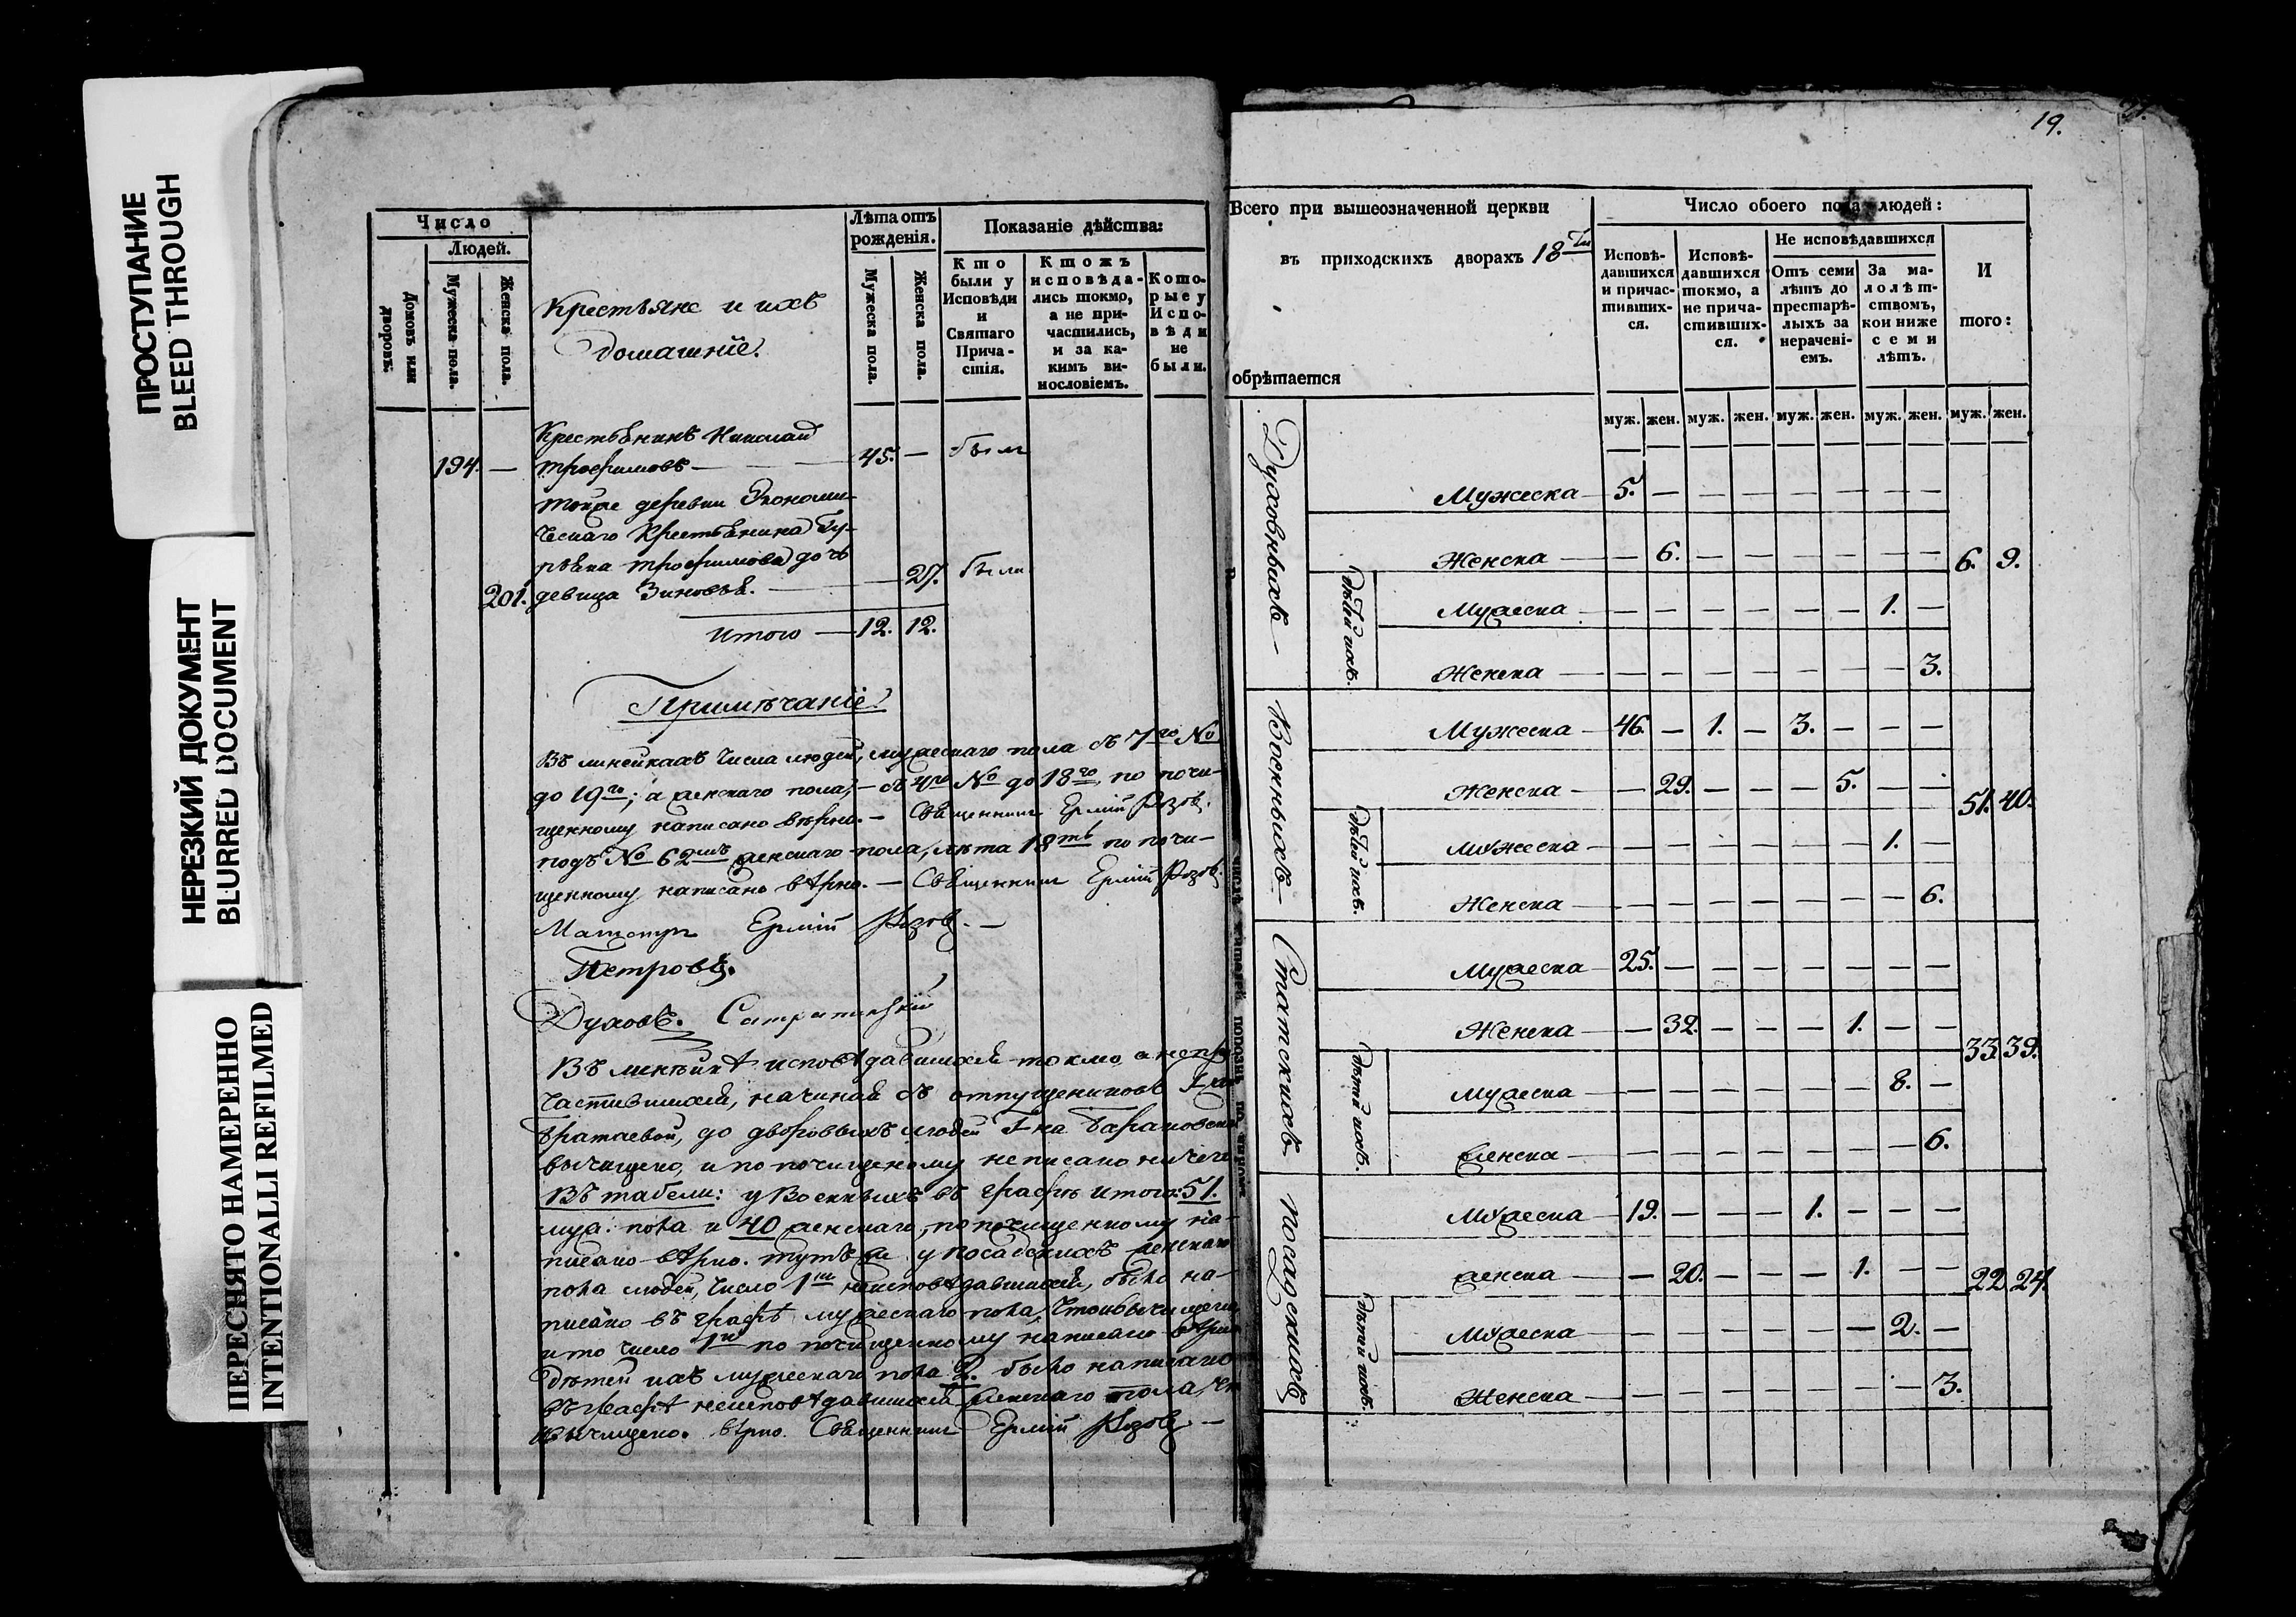 ПРОСТУПАНИЕ
BLEED THROUGH
НЕРЕЗКИЙ ДОКУМЕНТ
BLURRED DOCUMENT
ПЕРЕСНЯТО НАМЕРЕННО
INTENTIONALLI REFILMED
Число
Людей.
Домовъ или дворовъ.
Мужеска пола.
Женска пола.
Крестьяне и ихъ
домашніе.
Лѣта отъ
рожденія.
Мужеска пола.
Женска пола.
Показаніе дѣйства:
Кто
были у
Исповѣди
и
Святаго
Прича-
стія.
Ктожъ
исповѣда-
лись токмо,
а не при-
частились,
и за ка-
кимъ ви-
нословіемъ.
Кото-
рые у
Испо-
вѣди
не
были.
Крестьянинъ Николай
194. — Трофимовъ — 45. — былъ
тойже деревни Экономи-
ческаго Крестьянина
Трофимова дочь
201. девица Зиновья. — 27. была
Итого — 12. 12.
Примѣчаніе.
Въ линейкахъ числа людей, мужескаго пола съ 7го №
до 19го; а женскаго пола, — съ 4го № до 18го, по почи-
щенному написано вѣрно. — Священникъ Ермій Розовъ.
подъ № 62мъ женскаго пола, лѣта 18ть по почи-
щенному написано вѣрно. — Священникъ Ермій Розовъ.
Ермій Розовъ. —
Петровъ.
Духовъ.
Въ линѣйкѣ исповѣдавшихся токмо а непри
частившихся, начиная съ отпущениковъ
до дворовыхъ людей Г-на
вычищено, и по почищеному неписано ничего
Въ табели: у Военныхъ въ графѣ итого: 51.
муж. пола и 40 женскаго, по почищенному на-
писано вѣрно. тутъ же у посадскихъ женскаго
пола людей, число 1 неисповѣдавшихся, было на-
писано въ графѣ мужескаго пола,
и то число 1 по почищенному написано вѣрно
дѣтей ихъ мужескаго пола 2. было написано
въ графѣ неисповѣдавшихся женскаго пола,
вычищено. вѣрно. Священникъ Ермій Розовъ —
19.
Всего при вышеозначенной церкви
въ приходскихъ дворахъ 18ти
обрѣтается
Число обоего пола людей:
Исповѣ-
давшихся
и причас-
тивших-
ся.
Исповѣ-
давшихся
токмо, а
не прича-
стивших-
ся.
Не исповѣдавшихся
Отъ семи
лѣтъ до
престарѣ-
лыхъ за
нерачені-
емъ.
За ма-
лолѣт-
ствомъ,
кои ниже
семи
лѣтъ.
И
того:
муж. жен. муж. жен. муж. жен. муж. жен. муж. жен.
Духовныхъ —
Мужеска — 5. — — — — — — —
Женска — — 6. — — — — — — 6. 9.
дѣтей ихъ.
Мужеска — — — — — — — 1. —
Женска — — — — — — — — 3.
Военныхъ —
Мужеска — 46. — 1. — 3. — — —
Женска — — 29. — — — 5. — — 51. 40.
дѣтей ихъ.
Мужеска — — — — — — — 1. —
Женска — — — — — — — — 6.
Статскихъ
Мужеска — 25. — — — — — — —
Женска — — 32. — — — 1. — — 33. 39.
дѣтей ихъ.
Мужеска — — — — — — — 8. —
Женска — — — — — — — — 6.
посадскихъ
Мужеска — 19. — — — 1. — — —
женска — — 20. — — — 1. — — 22. 24.
дѣтей ихъ.
Мужеска — — — — — — — 2. —
Женска — — — — — — — — 3.